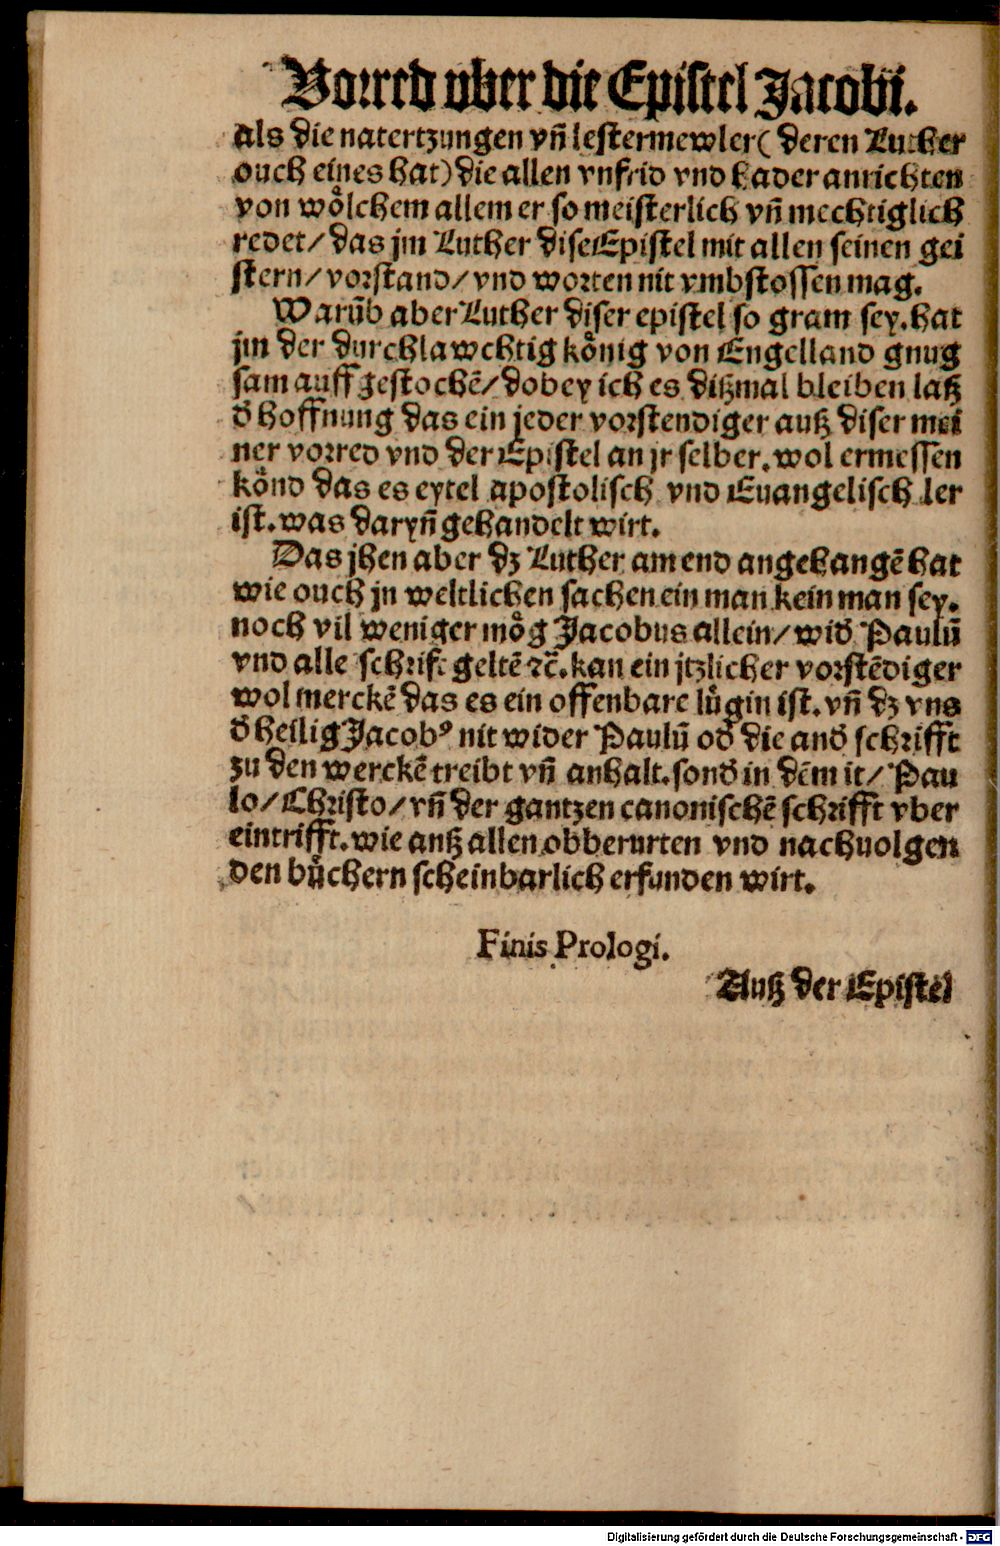 Vorred vber die Epistel Jacobi.
als die natertzungen vñ lestermewler( deren Luther
ouch eines hat)die allen vnfrid vnd hader anrichten
von wölchem allem er so meisterlich vñ mechtiglich
redet/ das jm Luther dise Epistel mit allen seinen gei
stern/ vorstand/ vnd worten nit vmbstossen mag.
Warũb aber Luther diser epistel so gram sey. hat
jm der durchlawchtig könig von Engelland gnug
sam auffgestochẽ/ dobey ich es dißmal bleiben laß
đ hoffnung das ein jeder vorstendiger auß diser mei
ner vorred vnd der Epistel an jr selber. wol ermessen
könd das es eytel apostolisch vnd Euangelisch ler
ist. was daryñ gehandelt wirt.
Das jhen aber dz Luther am end angehangẽ hat
wie ouch jn weltlichen sachen ein man kein man sey.
noch vil weniger mög Jacobus allein/ wiđ Paulũ
vnd alle schrift geltẽ ꝛc̃. kan ein jtzlicher vorstẽdiger
wol merckẽ das es ein offenbare lůgin ist. vñ dz vns
đ heilig Jacobꝰ nit wider Paulũ ođ die anđ schrifft
zu den werckẽ treibt vñ anhalt. sonđ in dẽm it/ Pau
lo/ Christo/ vñ der gantzen canonischẽ schrifft vber
eintrifft. wie auß allen obberurten vnd nachuolgen
den bůchern scheinbarlich erfunden wirt.
Finis Prologi.
Auß der Epistel
Digitalisierung gefördert durch die Deutsche Forschungsgemeinschaft - DFG